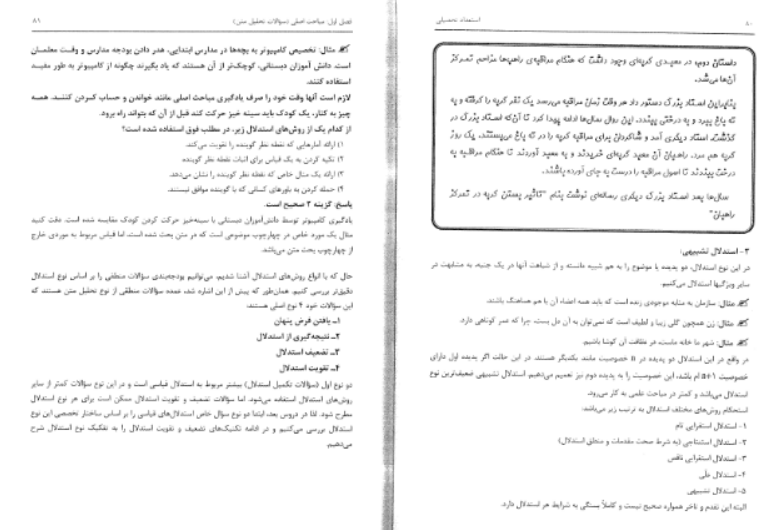 استعداد تحصیلی
۸۰
داستان دوم: در معبدی گربه‌ای وجود داشت که هنگام مراقبه‌ی راهب‌ها مزاحم تمرکز
آن‌ها می‌شد.
بنابراین استاد بزرگ دستور داد هر وقت زمان مراقبه می‌رسد یک نفر گربه را گرفته و به
ته باغ ببرد و به درختی ببندد. این روال سال‌ها ادامه پیدا کرد تا آن‌که استاد بزرگ در
گذشت. استاد دیگری آمد و شاگردان برای مراقبه گربه را در ته باغ می‌بستند. یک روز
گربه هم مرد. راهبان آن معبد گربه‌ای خریدند و به معبد آوردند تا هنگام مراقبه به
درخت ببندند تا اصول مراقبه را درست به جای آورده باشند.
سال‌ها بعد استاد بزرگ دیگری رساله‌ای نوشت بنام "تأثیر بستن گربه در تمرکز
راهبان"
۳- استدلال تشبیهی:
در این نوع استدلال، دو پدیده یا موضوع را به هم شبیه دانسته و از شباهت آنها در یک جنبه، به مشابهت در
سایر ویژگیها استدلال می‌کنیم.
مثال: سازمان به مثابه موجودی زنده است که باید همه اعضاء آن با هم هماهنگ باشند.
مثال: زن همچون گلی زیبا و لطیف است که نمی‌توان به آن دل بست، چرا که عمر کوتاهی دارد.
مثال: شهر ما خانه ماست، در نظافت آن کوشا باشیم.
در واقع در این استدلال دو پدیده در n خصوصیت مانند یکدیگر هستند. در این حالت اگر پدیده اول دارای
خصوصیت n+۱ ام باشد، این خصوصیت را به پدیده دوم نیز تعمیم می‌دهیم. استدلال تشبیهی ضعیف‌ترین نوع
استدلال می‌باشد و کمتر در مباحث علمی به کار می‌رود.
استحکام روش‌های مختلف استدلال به ترتیب زیر می‌باشد:
۱- استدلال استقرایی تام
۲- استدلال استنتاجی (به شرط صحت مقدمات و منطق استدلال)
۳- استدلال استقرایی ناقص
۴- استدلال علّی
۵- استدلال تشبیهی
البته این تقدم و تاخر همواره صحیح نیست و کاملاً بستگی به شرایط هر استدلال دارد.
فصل اول: مباحث اصلی (سؤالات تحلیل متن)
۸۱
مثال: تخصیص کامپیوتر به بچه‌ها در مدارس ابتدایی، هدر دادن بودجه مدارس و وقت معلمان
است. دانش آموزان دبستانی، کوچک‌تر از آن هستند که یاد بگیرند چگونه از کامپیوتر به طور مفید
استفاده کنند.
لازم است آنها وقت خود را صرف یادگیری مباحث اصلی مانند خواندن و حساب کردن کننـد. همـه
چیز به کنار، یک کودک باید سینه خیز حرکت کند قبل از آن که بتواند راه برود.
از کدام یک از روش‌های استدلال زیر، در مطلب فوق استفاده شده است؟
۱) ارائه آمارهایی که نقطه نظر گوینده را تقویت می‌کند.
۲) تکیه کردن به یک قیاس برای اثبات نقطه نظر گوینده
۳) ارائه یک مثال خاص که نقطه نظر گوینده را نشان می‌دهد.
۴) حمله کردن به باورهای کسانی که با گوینده موافق نیستند.
پاسخ: گزینه ۲ صحیح است.
یادگیری کامپیوتر توسط دانش‌آموزان دبستانی با سینه‌خیز حرکت کردن کودک مقایسه شده است. دقت کنید
مثال یک مورد خاص در چهارچوب موضوعی است که در متن بحث شده است، اما قیاس مربوط به موردی خارج
از چهارچوب بحث متن می‌باشد.
حال که با انواع روش‌های استدلال آشنا شدیم، می‌توانیم بودجه‌بندی سؤالات منطقی را بر اساس نوع استدلال
دقیق‌تر بررسی کنیم. همان‌طور که پیش از این اشاره شد، عمده سؤالات منطقی از نوع تحلیل متن هستند که
این سؤالات خود ۴ نوع اصلی هستند:
۱- یافتن فرض پنهان
۲- نتیجه‌گیری از استدلال
۳- تضعیف استدلال
۴- تقویت استدلال
دو نوع اول (سؤالات تکمیل استدلال) بیشتر مربوط به استدلال قیاسی است و در این نوع سؤالات کمتر از سایر
روش‌های استدلال استفاده می‌شود. اما سؤالات تضعیف و تقویت استدلال ممکن است برای هر نوع استدلال
مطرح شود. لذا در دروس بعد، ابتدا دو نوع سؤال خاص استدلال‌های قیاسی را بر اساس ساختار تخصصی این نوع
استدلال بررسی می‌کنیم و در ادامه تکنیک‌های تضعیف و تقویت استدلال را به تفکیک نوع استدلال شرح
می‌دهیم.